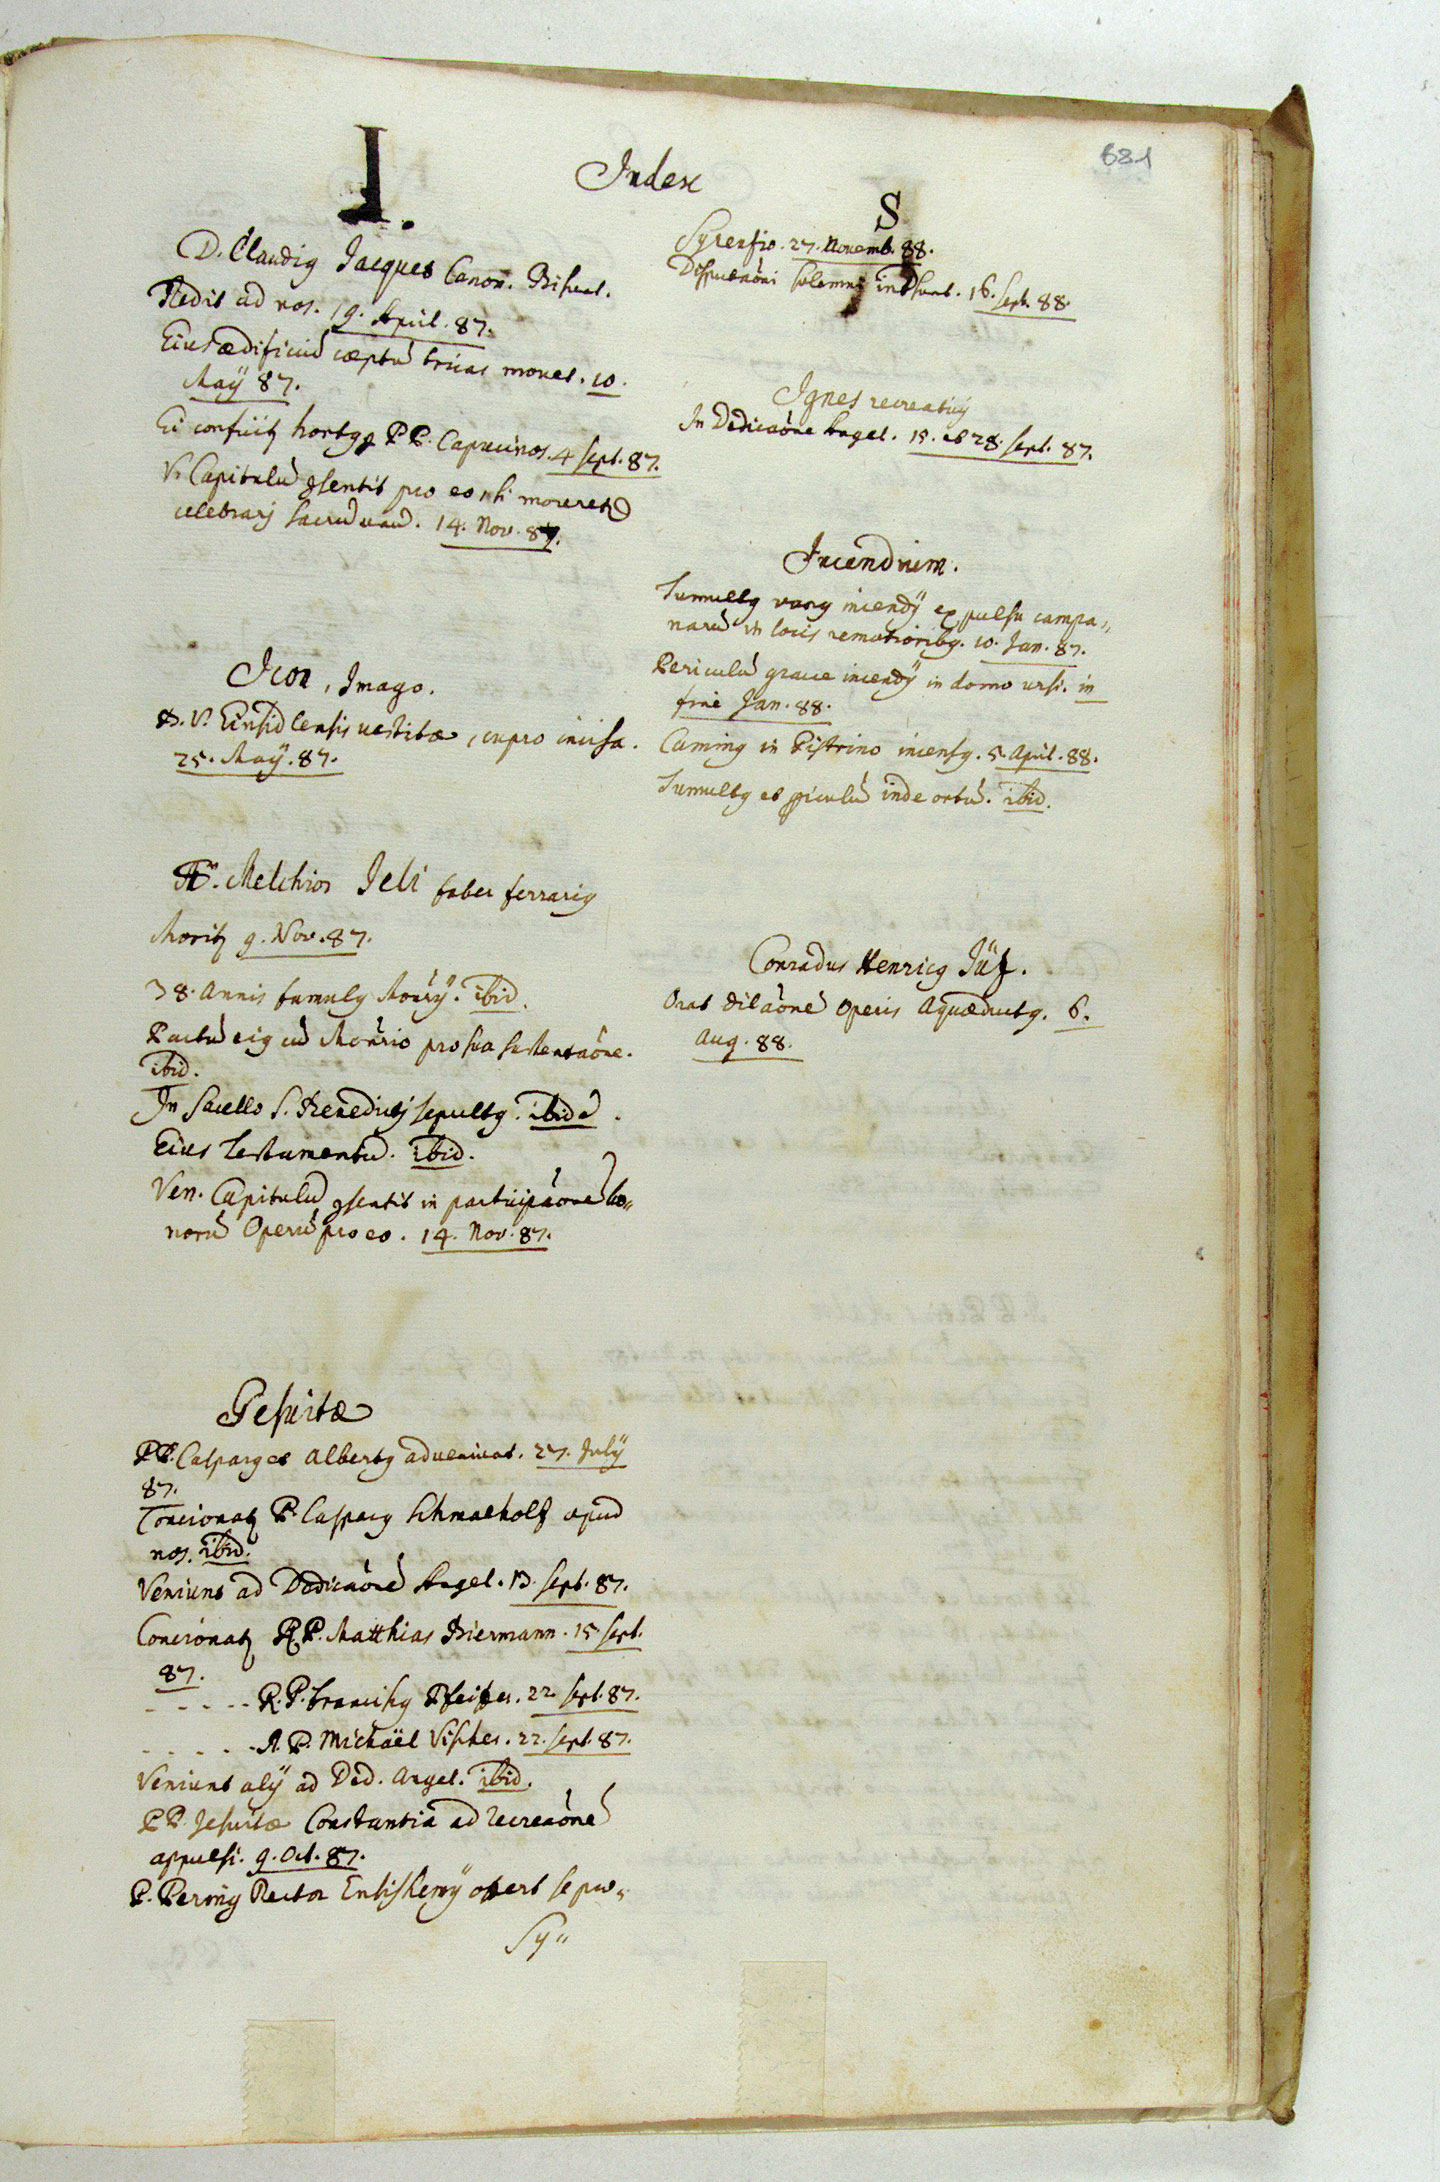 681
Index
I.
D. Claudig Jacques Canon. Bisunt.
Redit ad nos. 19. April. 87.
Eius ædificiū cæptū tricas mouet. 10.
Maÿ 87.
Ei conficitz hortg PP. Capucinos. 4 Sept. 87.
V. Capitulū gsentit pro eo nli moreretr
celebrarj sacrū. 14. Nov. 87.
Icon, Imago.
B. V. Einsidlensis vestitæ, cupro incisa.
25. Maÿ. 87.
Fr. Melchior Jeli faber ferrarig
Moritz 9. Nov. 87.
38. Annis famulg Mōrÿ. ibid.
Pactū eig cū Mon̄rio pro sua sustentaōne.
ibid.
In Sacello S. Benedictj sepultg. ibidē.
Eius Testamentū. ibid.
Ven. Capitulū gsentit in participaōnē bo„
norū Operū pro eo. 14. Nov. 87.
Jesuitæ
PP. Casparg et Albertg adueniunt. 27. Julÿ
87.
Concionatz P. Casparg Schmaltholtz apud
nos. ibid.
Veniunt ad Dedicaōnē Angel. 13. Sept. 87.
Concionatz R. P. Matthias Biermann. 15 Sept.
87.
- - - - - R. P. Franciscg Pfeifer. 22 Sept. 87.
- - - - - R. P. Michaël Vischer. 22. Sept. 87.
Veniunt alÿ ad Ded. Angel. ibid.
PP. Jesuitæ Constantiā ad recreaōnē
appulsi. 9. Oct. 87.
P. Rector offert se pro„
Sy„
S
Syrensio. 27. Novemb. 88.
Disputaōni solemni intersunt. 16. Sept. 88.
Ignes recreativj
In Dedicaōne Angel. 15. et 28. Sept. 87.
Incendium.
Tumultg vang incendÿ ex pulsu campa„
narū in locis remotioribg. 10. Jan. 87.
Periculū graue incendÿ in domo ursi. in
fine Jan. 88.
Caming in Pistrino incensg. 5. April. 88.
Tumultg et piculū inde ortū. ibid.
Conradus Henricg Jütz.
Orat dilaōnē Operis Aquæductg. 6.
Aug. 88.